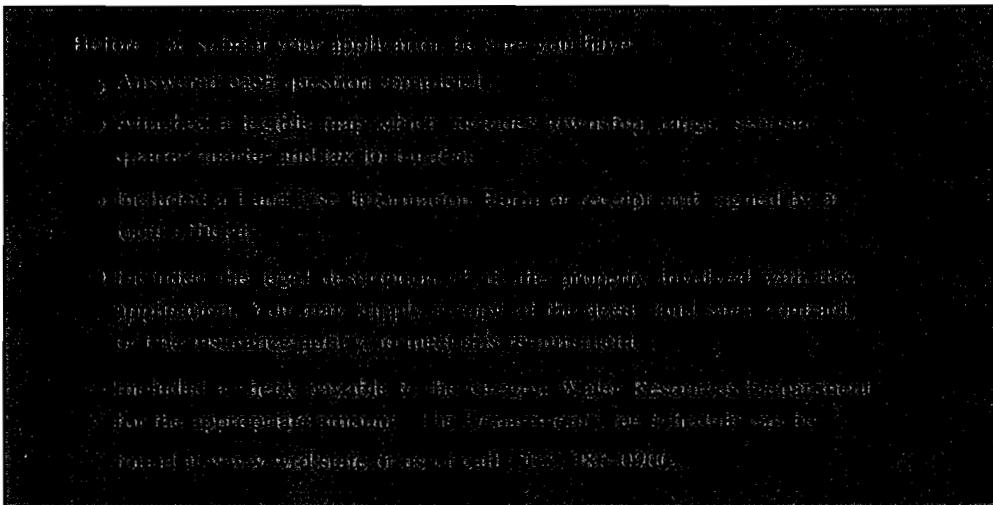 Before you submit your application, be sure you have:
Answered each question completely.
Attached a legible map which includes township, range, section,
quarter quarter and tax lot number.
Included a Land Use Information Form or receipt stub signed by a
local official.
Included the legal description of all the property involved with this
application. You may supply a copy of the deed, land sales contract,
or title insurance policy, to meet this requirement.
Included a check payable to the Oregon Water Resources Department
for the appropriate amount. The Department's fee schedule can be
found at www or call